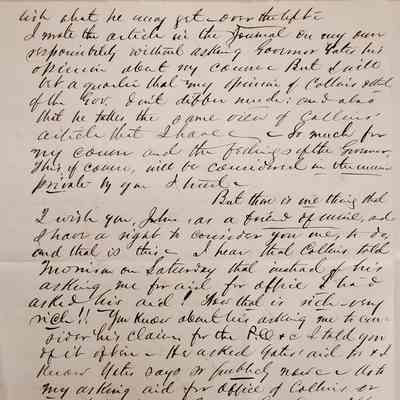 wish what he may get over the left
I wrote the article in the Journal on my own
responsibility without asking Governor Yates his
opinion about my course But I will
bet a quarter that my opinion of Collins & that
of the Gov. don't differ much: and also
that he takes the same view of Collins'
article that I have — So much for
my course and the feelings of the Governor.
This, of course, will be considered
private by you I trust —
But there is one thing that
I wish you, John, as a friend of mine, and
I have a right to consider you one, to do
and that is this — I hear that Collins told
on Saturday that instead of his
asking me for aid for office I had
asked his aid! Now that is rich - very
rich!! You know about his asking me to con-
sider his claims for the P.O. &c I told you
of it often — He asked Yates' aid too & I
know Yates says so publicly now — As to
my asking aid for office of Collins or